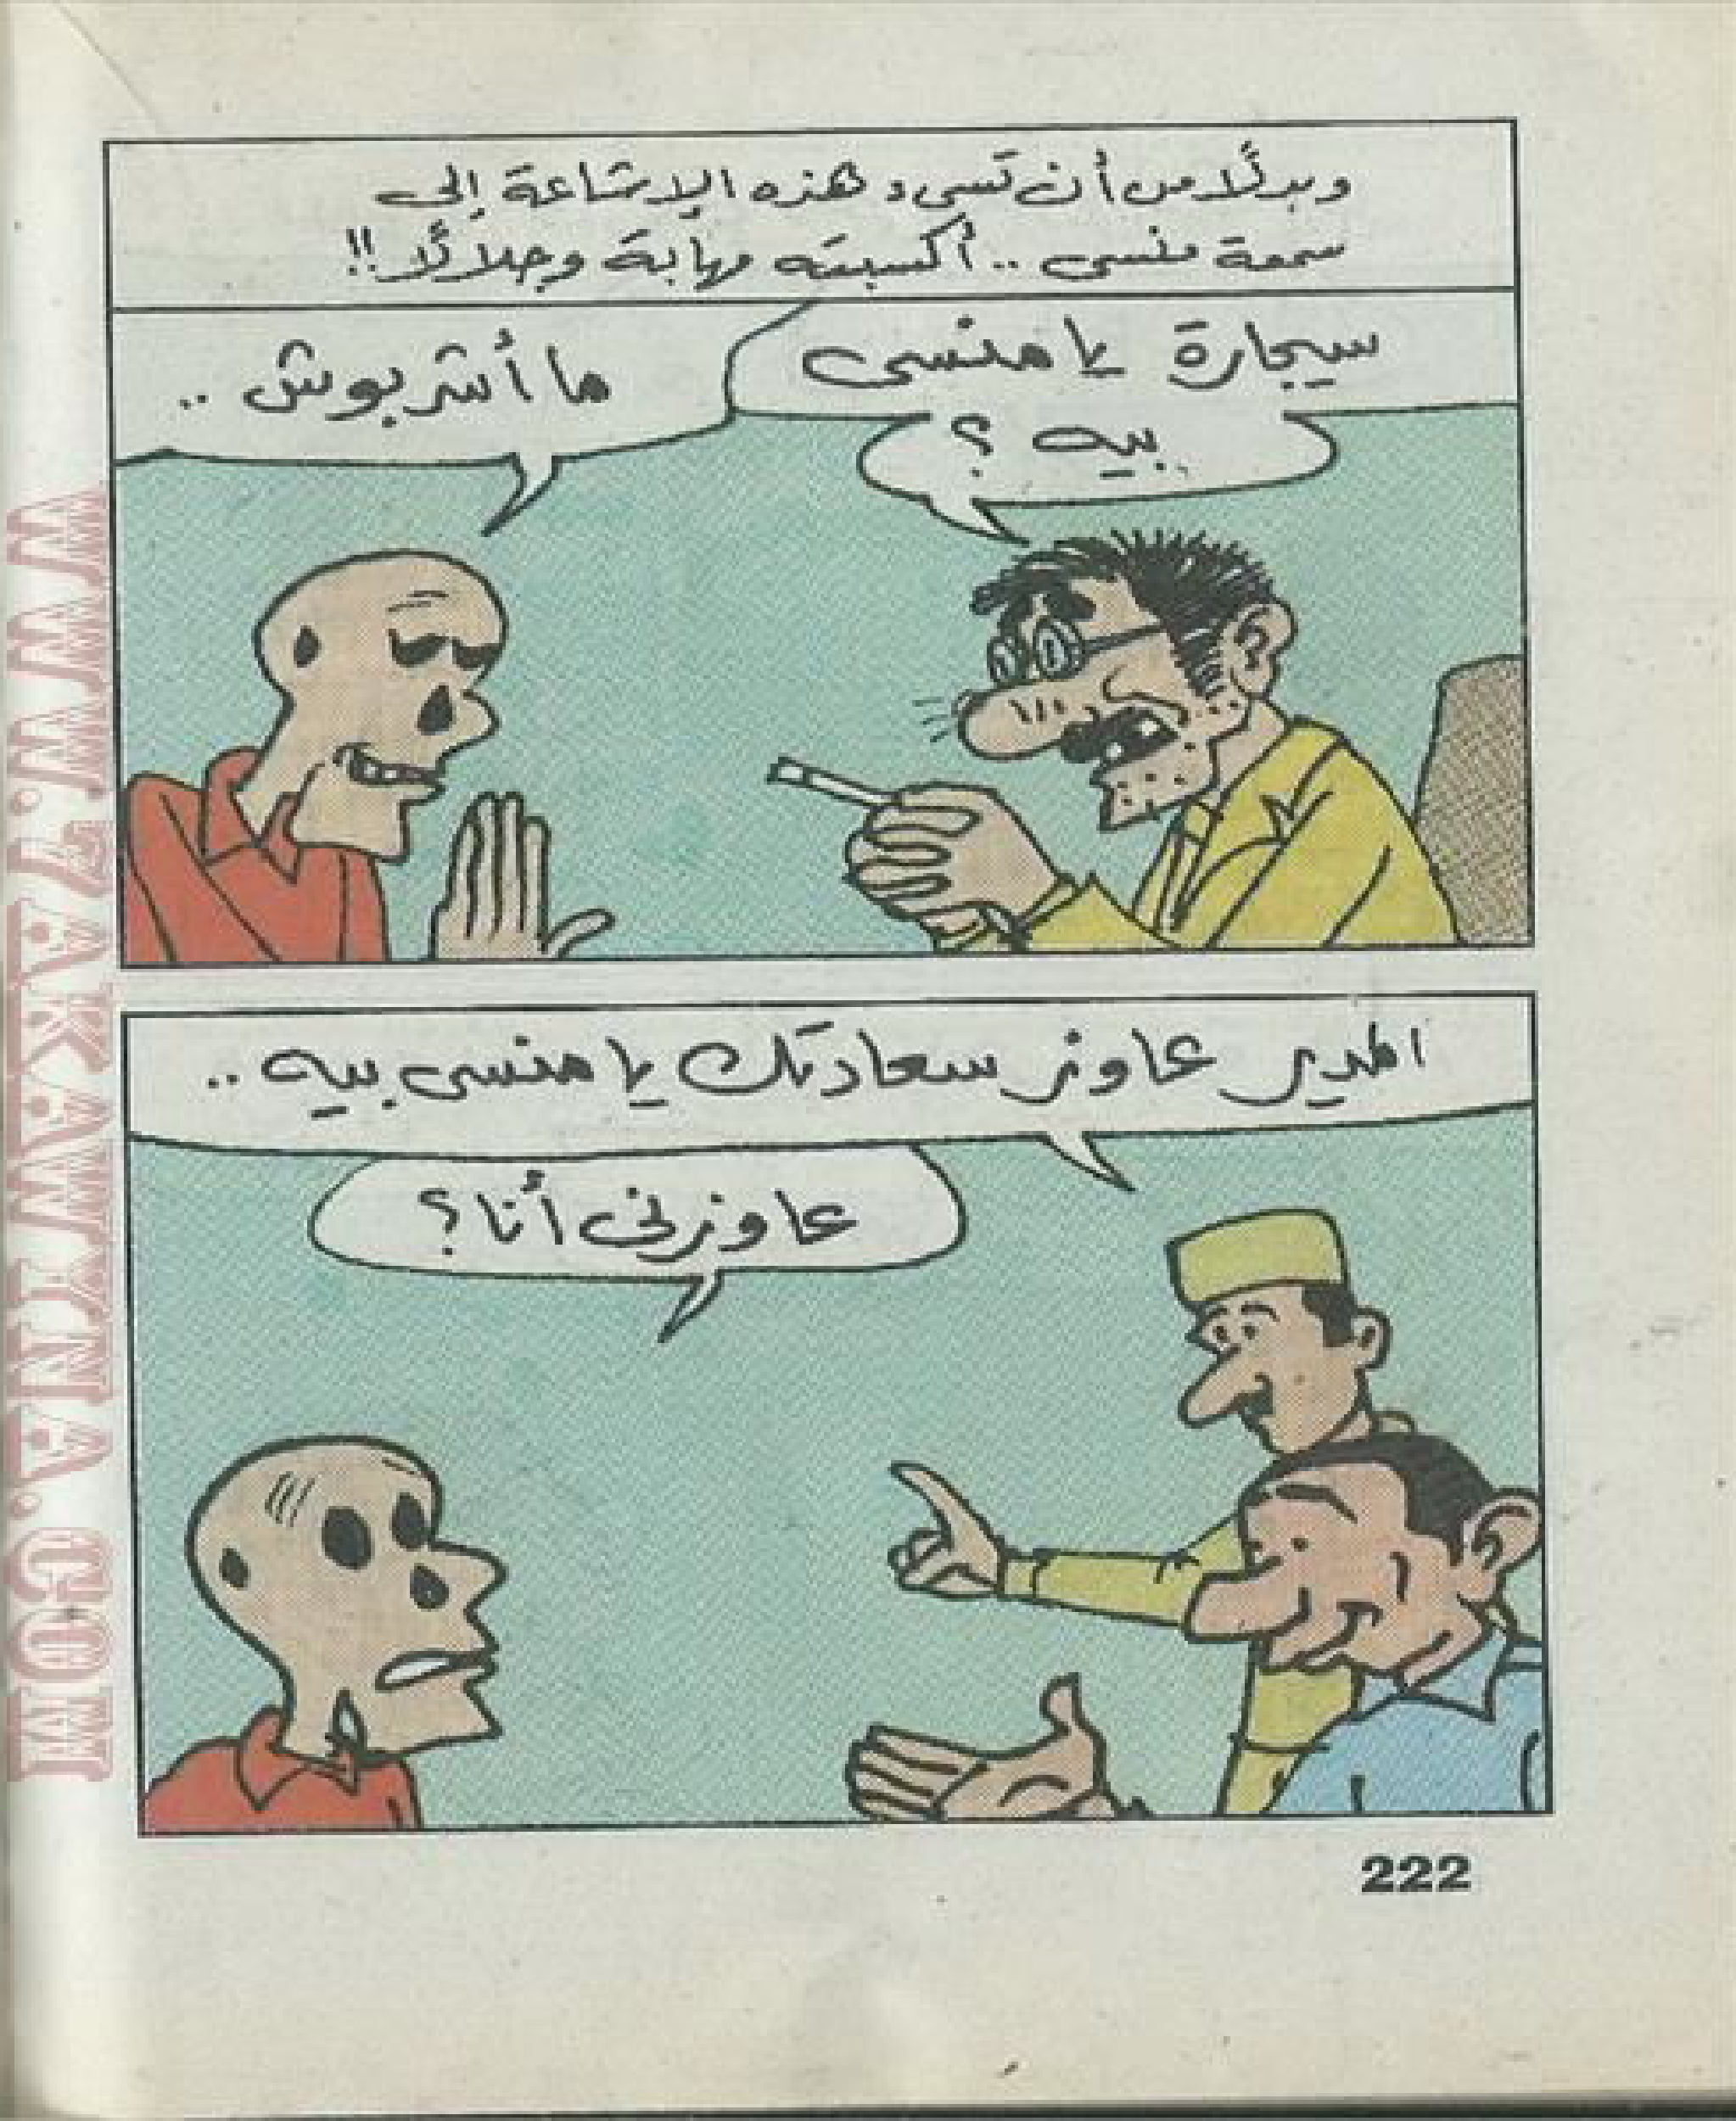 وبدلًا من أن تسىء هذه الإشاعة إلى
سمعة منسى .. أكسبته مهابة وجلالًا !!
سيجارة يا منسى
بيه ؟
ما أشربوش ..
المدير عاوز سعادتك يا منسى بيه ..
عاوزنى أنا ؟
222
WWW.ZAKAWTNA.COM